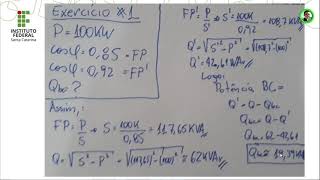 INSTITUTO
FEDERAL
Santa Catarina
Exercício #1
P = 100KW
cosφ = 0,85 = FP
cosφ = 0,92 = FP'
Qbc ?
Assim,
FP = P/S ⇒ S = 100K/0,85 = 117,65 KVA
Q = √S² - P² = √(117,65)² - (100)² = 62KVAr
FP' = P/S' S' = 100K/0,92 = 108,7 KVA
Q' = √S'² - P² = √(108,7)² - (100)²
Q' = 42,61 KVAr
Logo:
Potência BC =
Q' = Q - Qbc
Qbc = Q - Q'
Qbc = 62 - 42,61
Qbc = 19,39 KVAr